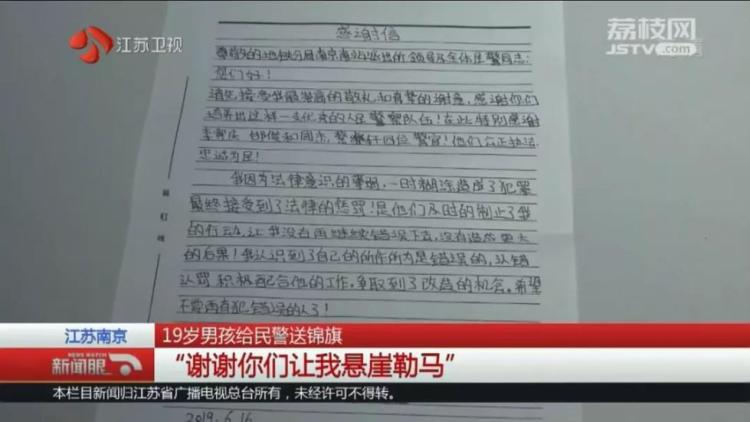 江苏卫视
荔枝网
JSTV.com
感谢信
尊敬的地铁分局南京南站派出所领导及全体民警同志:
您们好!
请先接受我最崇高的敬礼和真挚的谢意,感谢你们
培养出这样一支优秀的人民警察队伍!在此特别感谢
四位警官!他们公正执法
忠诚为民!
我因为法律意识的薄弱,一时糊涂造成了犯罪
最终接受到了法律的惩罚!是他们及时的制止了我
的行动,让我没有再继续错误下去,没有造成更大
的后果!我认识到了自己的所作所为是错误的,认错
认罚积极配合他的工作,争取到了改造的机会。希望
不要再有犯错误的人了!
装
订
线
江苏南京
19岁男孩给民警送锦旗
NEWS WATCH
新闻眼
“谢谢你们让我悬崖勒马”
本栏目新闻归江苏省广播电视总台所有,未经许可不得转。
2019.6.16